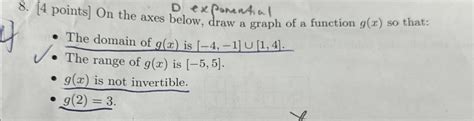 D exponential
8. [4 points] On the axes below, draw a graph of a function g(x) so that:
• The domain of g(x) is [−4, −1] ∪ [1, 4].
• The range of g(x) is [−5, 5].
• g(x) is not invertible.
• g(2) = 3.